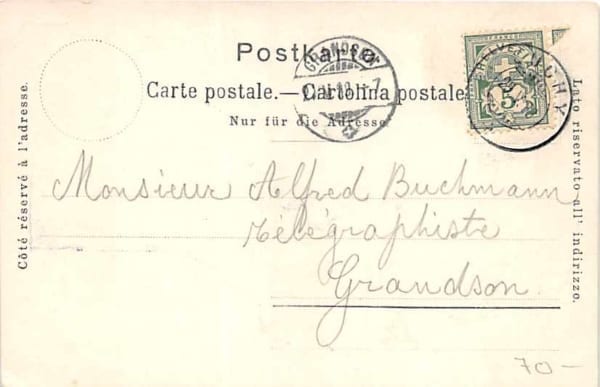 Postkarte
Carte postale.—Cartolina postale
Nur für die Adresse
Côté réservé à l'adresse.
Lato riservato all' indirizzo.
GRANDSON
HELVETIA
FRANCO
5
Monsieur Alfred Buchmann
Télégraphiste
Grandson.
70–